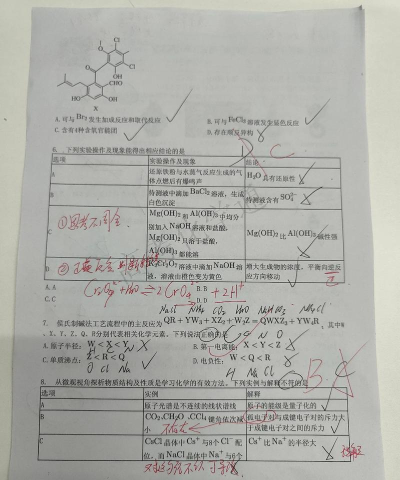 Cl
Cl
O
OH
CHO
HO
OH
X
A.可与Br₂发生加成反应和取代反应
B.可与FeCl₃溶液发生显色反应
C.含有4种含氧官能团
D.存在顺反异构
6. 下列实验操作及现象能得出相应结论的是
D C
选项 实验操作及现象 结论
A 还原铁粉与水蒸气反应生成的气体点燃后有爆鸣声 H₂O具有还原性
B 待测液中滴加BaCl₂溶液,生成白色沉淀 待测液含有SO₄²⁻
C Mg(OH)₂和Al(OH)₃中均分别加入NaOH溶液和盐酸,Mg(OH)₂只溶于盐酸,Al(OH)₃都能溶 Mg(OH)₂比Al(OH)₃碱性强
①思考不周全
D K₂Cr₂O₇溶液中滴加NaOH溶液,溶液由橙色变为黄色 增大生成物的浓度,平衡向逆反应方向移动
A.A
B.B
C.C
D.D
Cr₂O₇²⁻+H₂O⇌2CrO₄²⁻+2H⁺
正
NaCl NH₃ CO₂ H₂O NaHCO₃ NH₄Cl
7. 侯氏制碱法工艺流程中的主反应为QR+YW₃+XZ₂+W₂Z=QWXZ₃+YW₄R,其中W、X、Y、Z、Q、R分别代表相关化学元素。下列说法正确的是
C
A.原子半径:W<X<Y
H C N
B.第一电离能:X<Y<Z
C N O
C.单质沸点:Z<R<Q
O Cl Na
D.电负性:W<Q<R
H Na Cl
8. 从微观视角探析物质结构及性质是学习化学的有效方法。下列实例与解释不符的是
选项 实例 解释
A 原子光谱是不连续的线状谱线 原子的能级是量子化的
B CO₂、CH₂O、CCl₄键角依次减小 孤电子对与成键电子对的斥力大于成键电子对之间的斥力
C CsCl晶体中Cs⁺与8个Cl⁻配位,而NaCl晶体中Na⁺与6个 Cs⁺比Na⁺的半径大